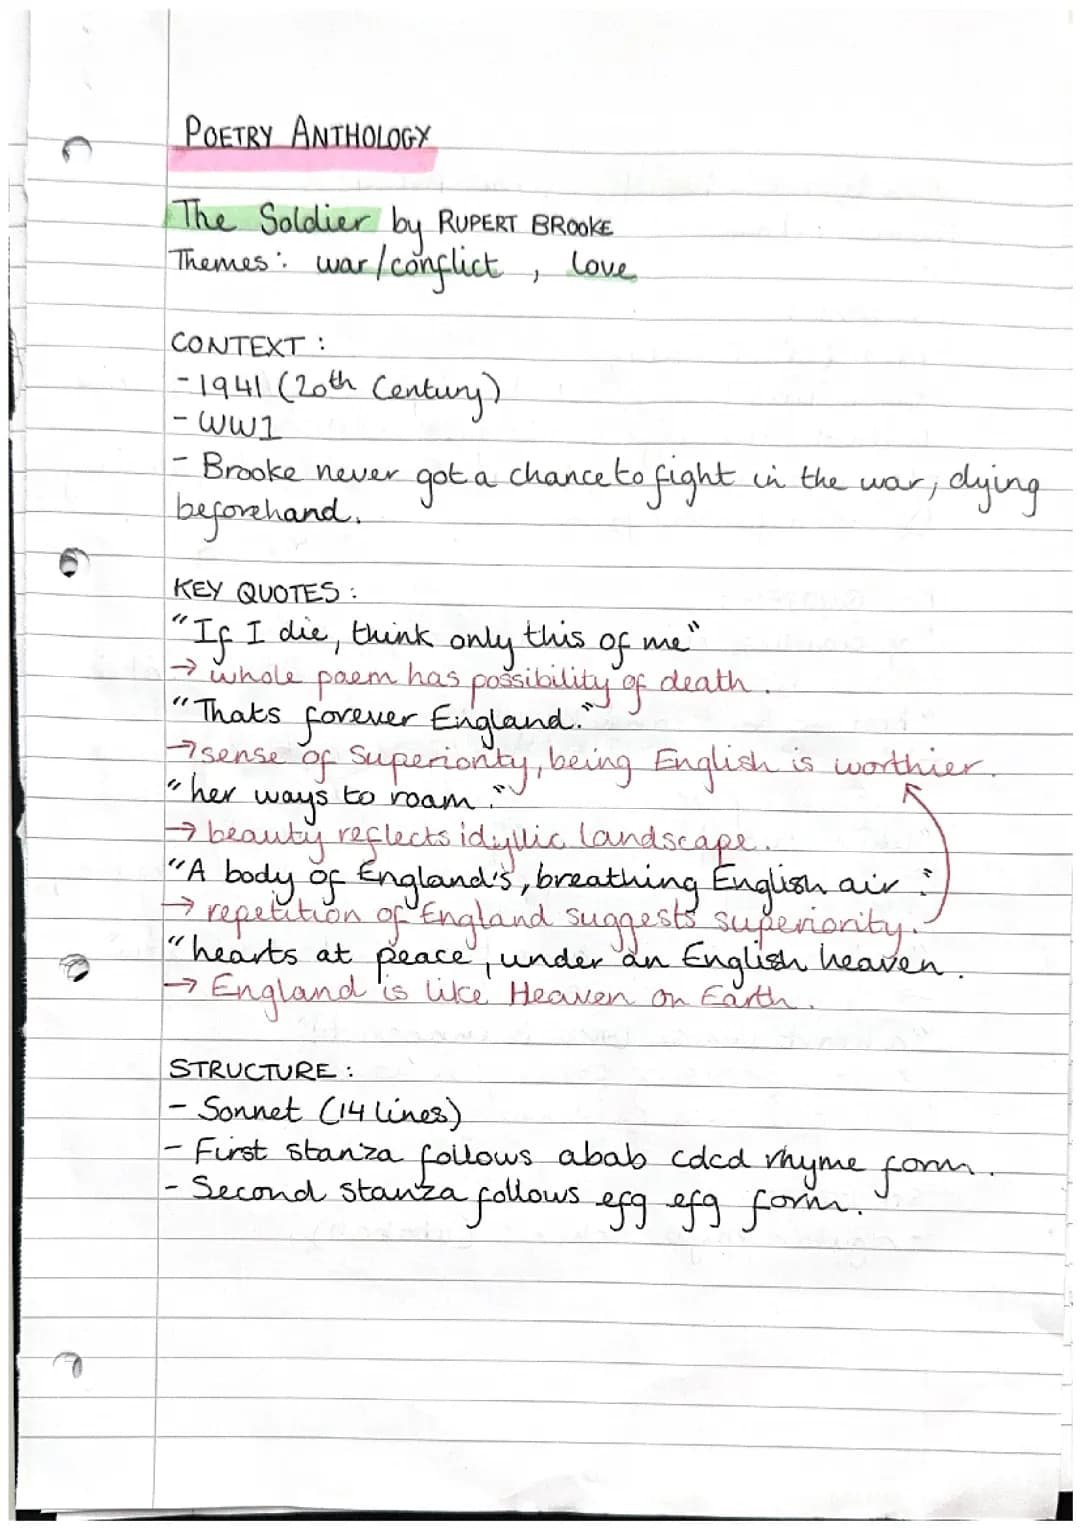 POETRY ANTHOLOGY
The Soldier by RUPERT BROOKE
Themes: war/conflict, love
CONTEXT:
- 1941 (20th Century)
- WW1
- Brooke never got a chance to fight in the war, dying
beforehand.
KEY QUOTES:
"If I die, think only this of me"
→ whole poem has possibility of death.
"Thats forever England."
→ sense of Superiority, being English is worthier.
"her ways to roam."
→ beauty reflects idyllic landscape.
"A body of England's, breathing English air."
→ repetition of England suggests superiority.
"hearts at peace, under an English heaven.
→ England is like Heaven on Earth.
STRUCTURE:
- Sonnet (14 lines)
- First stanza follows abab cdcd rhyme form.
- Second stanza follows efg efg form.